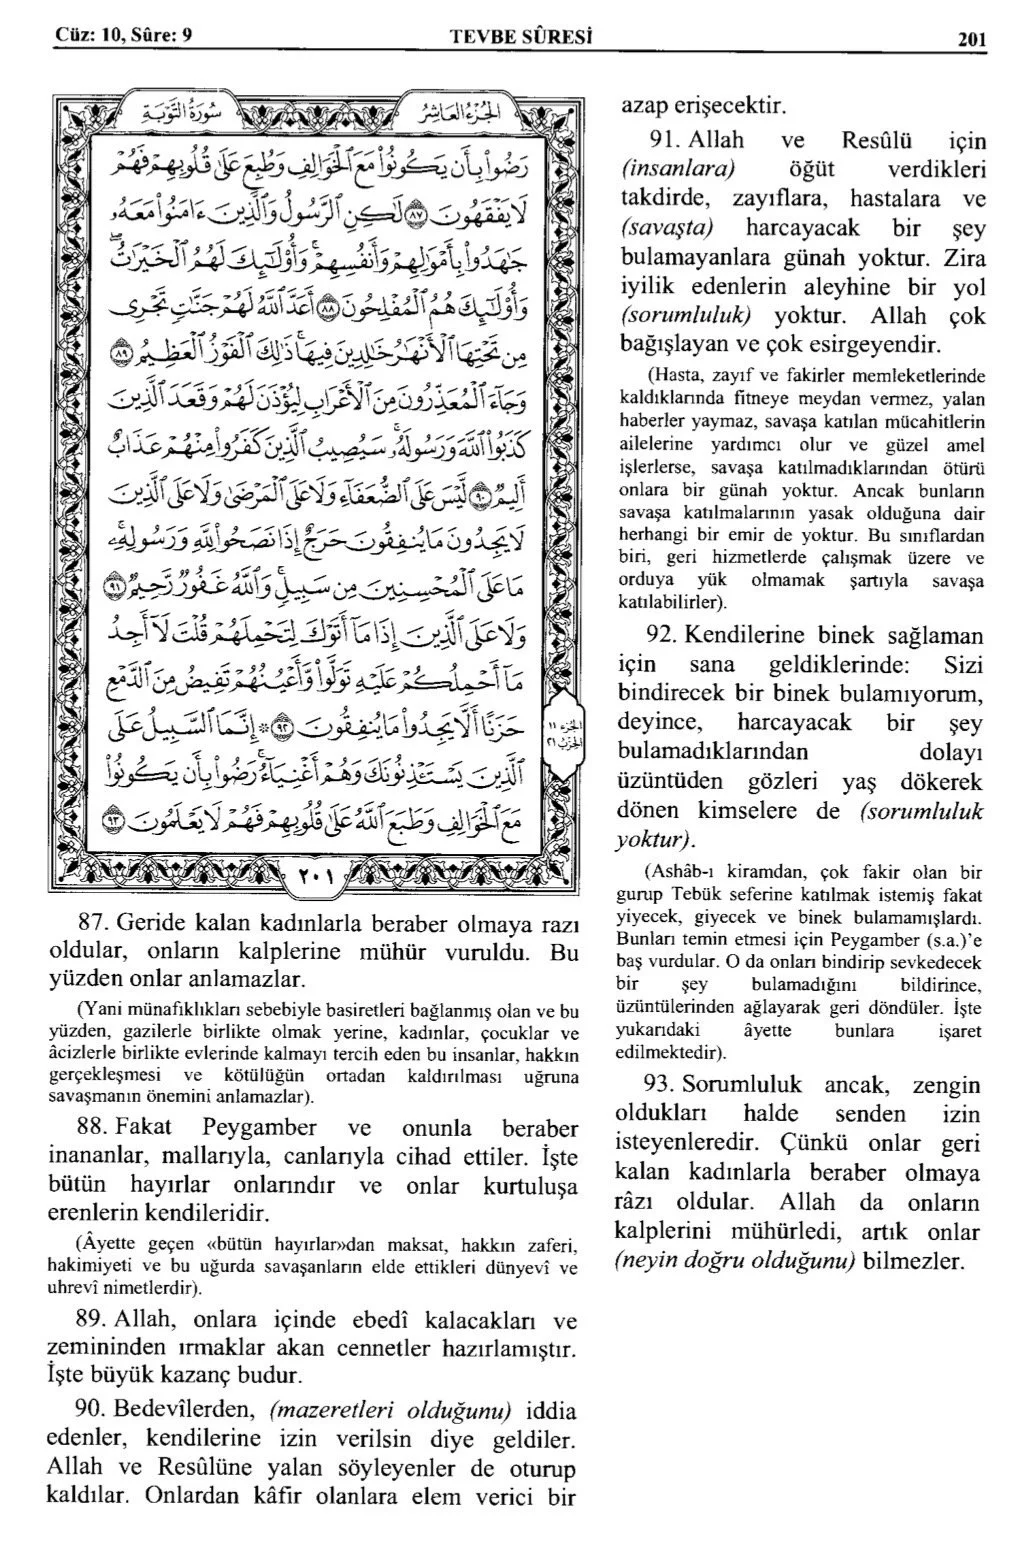 Cüz: 10, Sûre: 9
TEVBE SÛRESİ
201
سُورَةُ التَّوْبَةِ
الجُزْءُ العَاشِرُ
رَضُوا۟ بِأَن يَكُونُوا۟ مَعَ ٱلْخَوَالِفِ وَطُبِعَ عَلَىٰ قُلُوبِهِمْ فَهُمْ
لَا يَفْقَهُونَ ﴿٨٧﴾ لَٰكِنِ ٱلرَّسُولُ وَٱلَّذِينَ ءَامَنُوا۟ مَعَهُۥ
جَٰهَدُوا۟ بِأَمْوَٰلِهِمْ وَأَنفُسِهِمْ ۚ وَأُو۟لَٰٓئِكَ لَهُمُ ٱلْخَيْرَٰتُ ۖ
وَأُو۟لَٰٓئِكَ هُمُ ٱلْمُفْلِحُونَ ﴿٨٨﴾ أَعَدَّ ٱللَّهُ لَهُمْ جَنَّٰتٍ تَجْرِى
مِن تَحْتِهَا ٱلْأَنْهَٰرُ خَٰلِدِينَ فِيهَا ۚ ذَٰلِكَ ٱلْفَوْزُ ٱلْعَظِيمُ ﴿٨٩﴾
وَجَآءَ ٱلْمُعَذِّرُونَ مِنَ ٱلْأَعْرَابِ لِيُؤْذَنَ لَهُمْ وَقَعَدَ ٱلَّذِينَ
كَذَبُوا۟ ٱللَّهَ وَرَسُولَهُۥ ۚ سَيُصِيبُ ٱلَّذِينَ كَفَرُوا۟ مِنْهُمْ عَذَابٌ
أَلِيمٌ ﴿٩٠﴾ لَّيْسَ عَلَى ٱلضُّعَفَآءِ وَلَا عَلَى ٱلْمَرْضَىٰ وَلَا عَلَى ٱلَّذِينَ
لَا يَجِدُونَ مَا يُنفِقُونَ حَرَجٌ إِذَا نَصَحُوا۟ لِلَّهِ وَرَسُولِهِۦ ۚ
مَا عَلَى ٱلْمُحْسِنِينَ مِن سَبِيلٍ ۚ وَٱللَّهُ غَفُورٌ رَّحِيمٌ ﴿٩١﴾
وَلَا عَلَى ٱلَّذِينَ إِذَا مَآ أَتَوْكَ لِتَحْمِلَهُمْ قُلْتَ لَآ أَجِدُ
مَآ أَحْمِلُكُمْ عَلَيْهِ تَوَلَّوا۟ وَّأَعْيُنُهُمْ تَفِيضُ مِنَ ٱلدَّمْعِ
حَزَنًا أَلَّا يَجِدُوا۟ مَا يُنفِقُونَ ﴿٩٢﴾ * إِنَّمَا ٱلسَّبِيلُ عَلَى
ٱلَّذِينَ يَسْتَـْٔذِنُونَكَ وَهُمْ أَغْنِيَآءُ ۚ رَضُوا۟ بِأَن يَكُونُوا۟
مَعَ ٱلْخَوَالِفِ وَطَبَعَ ٱللَّهُ عَلَىٰ قُلُوبِهِمْ فَهُمْ لَا يَعْلَمُونَ ﴿٩٣﴾
الجزء ١١
الحزب ٢١
٢٠١
87. Geride kalan kadınlarla beraber olmaya razı
oldular, onların kalplerine mühür vuruldu. Bu
yüzden onlar anlamazlar.
(Yani münafıklıkları sebebiyle basiretleri bağlanmış olan ve bu
yüzden, gazilerle birlikte olmak yerine, kadınlar, çocuklar ve
âcizlerle birlikte evlerinde kalmayı tercih eden bu insanlar, hakkın
gerçekleşmesi ve kötülüğün ortadan kaldırılması uğruna
savaşmanın önemini anlamazlar).
88. Fakat Peygamber ve onunla beraber
inananlar, mallarıyla, canlarıyla cihad ettiler. İşte
bütün hayırlar onlarındır ve onlar kurtuluşa
erenlerin kendileridir.
(Âyette geçen «bütün hayırlar»dan maksat, hakkın zaferi,
hakimiyeti ve bu uğurda savaşanların elde ettikleri dünyevî ve
uhrevî nimetlerdir).
89. Allah, onlara içinde ebedî kalacakları ve
zemininden ırmaklar akan cennetler hazırlamıştır.
İşte büyük kazanç budur.
90. Bedevîlerden, (mazeretleri olduğunu) iddia
edenler, kendilerine izin verilsin diye geldiler.
Allah ve Resûlüne yalan söyleyenler de oturup
kaldılar. Onlardan kâfir olanlara elem verici bir
azap erişecektir.
91. Allah ve Resûlü için
(insanlara) öğüt verdikleri
takdirde, zayıflara, hastalara ve
(savaşta) harcayacak bir şey
bulamayanlara günah yoktur. Zira
iyilik edenlerin aleyhine bir yol
(sorumluluk) yoktur. Allah çok
bağışlayan ve çok esirgeyendir.
(Hasta, zayıf ve fakirler memleketlerinde
kaldıklarında fitneye meydan vermez, yalan
haberler yaymaz, savaşa katılan mücahitlerin
ailelerine yardımcı olur ve güzel amel
işlerlerse, savaşa katılmadıklarından ötürü
onlara bir günah yoktur. Ancak bunların
savaşa katılmalarının yasak olduğuna dair
herhangi bir emir de yoktur. Bu sınıflardan
biri, geri hizmetlerde çalışmak üzere ve
orduya yük olmamak şartıyla savaşa
katılabilirler).
92. Kendilerine binek sağlaman
için sana geldiklerinde: Sizi
bindirecek bir binek bulamıyorum,
deyince, harcayacak bir şey
bulamadıklarından dolayı
üzüntüden gözleri yaş dökerek
dönen kimselere de (sorumluluk
yoktur).
(Ashâb-ı kiramdan, çok fakir olan bir
gurup Tebük seferine katılmak istemiş fakat
yiyecek, giyecek ve binek bulamamışlardı.
Bunları temin etmesi için Peygamber (s.a.)'e
baş vurdular. O da onları bindirip sevkedecek
bir şey bulamadığını bildirince,
üzüntülerinden ağlayarak geri döndüler. İşte
yukarıdaki âyette bunlara işaret
edilmektedir).
93. Sorumluluk ancak, zengin
oldukları halde senden izin
isteyenleredir. Çünkü onlar geri
kalan kadınlarla beraber olmaya
râzı oldular. Allah da onların
kalplerini mühürledi, artık onlar
(neyin doğru olduğunu) bilmezler.